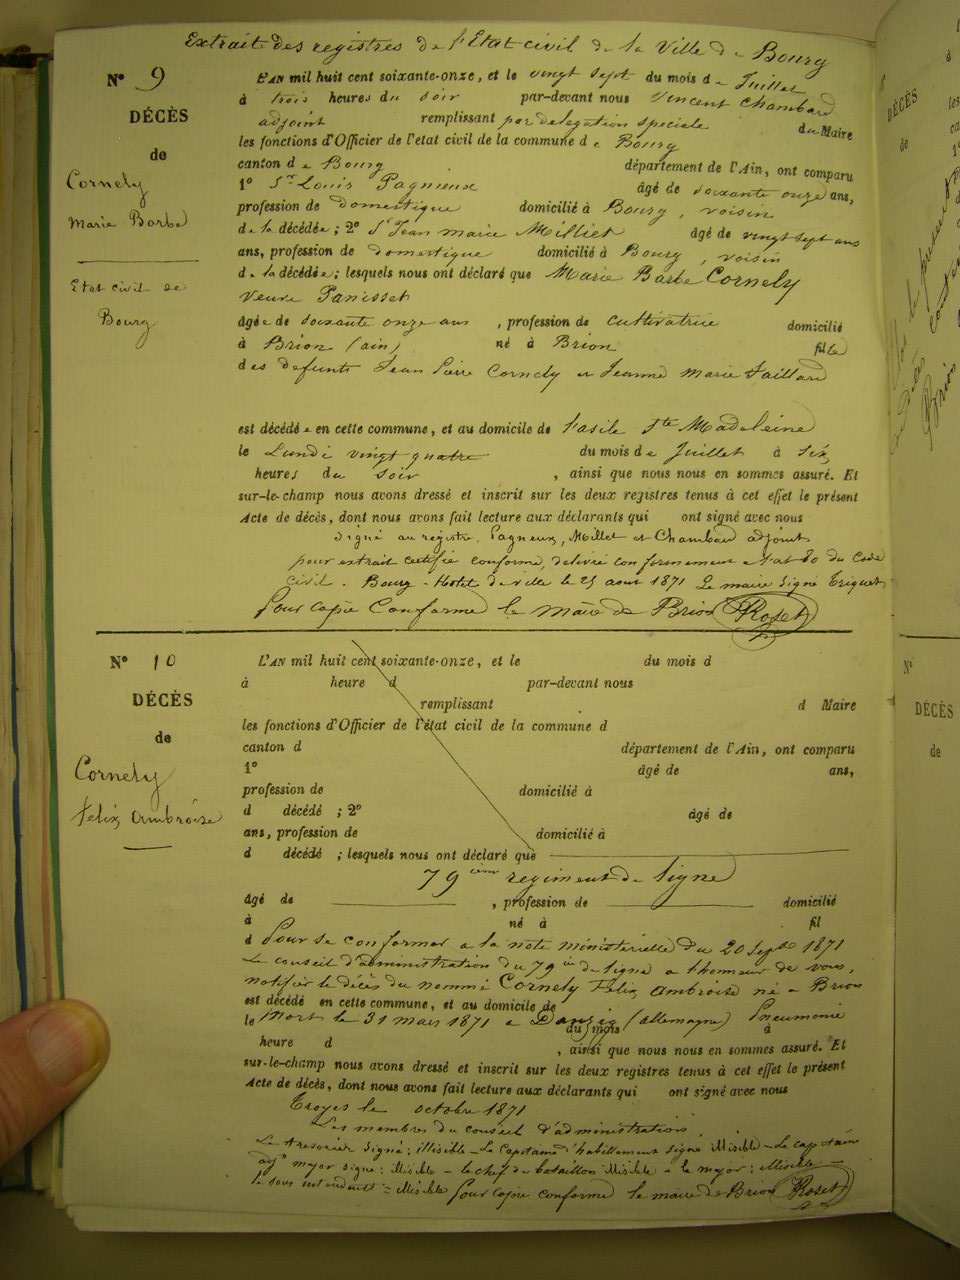 Extrait des registres de l'Etat civil de la Ville de Bourg
N° 9
DÉCÈS
de
Cornely
Marie Barbe
Etat civil de
Bourg
L'AN mil huit cent soixante-onze, et le vingt sept du mois de Juillet
à trois heures du soir par-devant nous Vincent Chambard
adjoint remplissant par délégation speciale du Maire
les fonctions d'Officier de l'état civil de la commune de Bourg
canton de Bourg département de l'Ain, ont comparu
1° Sr Louis Pagneux âgé de soixante onze ans,
profession de domestique domicilié à Bourg, voisin
de la décédée; 2° Sr Jean Marie Milliet âgé de vingt sept ans
ans, profession de domestique domicilié à Bourg, voisin
de la décédée; lesquels nous ont déclaré que Marie Barbe Cornely
veuve Panisset
âgée de soixante onze ans, profession de cultivatrice domicilié
à Brion (ain) né à Brion fille
des defunts Jean Pierre Cornely et Jeanne Marie Taillard
est décédée en cette commune, et au domicile de l'asile Ste Madeleine
le Lundi vingt quatre du mois de Juillet à six
heures du soir, ainsi que nous nous en sommes assuré. Et
sur-le-champ nous avons dressé et inscrit sur les deux registres tenus à cet effet le présent
Acte de décès, dont nous avons fait lecture aux déclarants qui ont signé avec nous
Signé au registre, Pagneux, Millet et Chambard adjoint
pour extrait certifié conforme, délivré conformement à l'art 80 du Code
civil. Bourg - Hotel de ville le 25 aout 1871 Le maire signé
Pour copie Conforme le maire de Brion Roset
N° 10
DÉCÈS
de
Cornely
Felix Ambroise
L'AN mil huit cent soixante-onze, et le du mois d
à heure d par-devant nous
remplissant d Maire
les fonctions d'Officier de l'état civil de la commune d
canton d département de l'Ain, ont comparu
1° âgé de ans,
profession de domicilié à
d décédé ; 2° âgé de
ans, profession de domicilié à
d décédé ; lesquels nous ont déclaré que
79eme regiment de ligne
âgé de , profession de domicilié
à né à fil
d Pour se conformer a la note ministerielle du 20 Septe 1871
Le conseil d'administration du 79ie de ligne a l'honneur de vous,
notifier le décès du nommé Cornely Felix Ambroise né a Brion
est décédé en cette commune, et au domicile de
le Mort le 31 mars 1871 a Danzig (allemagne) Pneumonie
du mois à
heure d , ainsi que nous nous en sommes assuré. Et
sur-le-champ nous avons dressé et inscrit sur les deux registres tenus à cet effet le présent
Acte de décès, dont nous avons fait lecture aux déclarants qui ont signé avec nous
Troyes le octobre 1871
Les membres du conseil d'administration.
Le tresorier signé: illisible - Le Capitaine d'habillement signé illisible - Le capitaine
adjt major signé: illisible - le chef de bataillon illisible - le major: illisible -
le sous intendant = illisible Pour copie conforme le maire de Brion Roset
DÉCÈS
de
N°
DÉCÈS
de